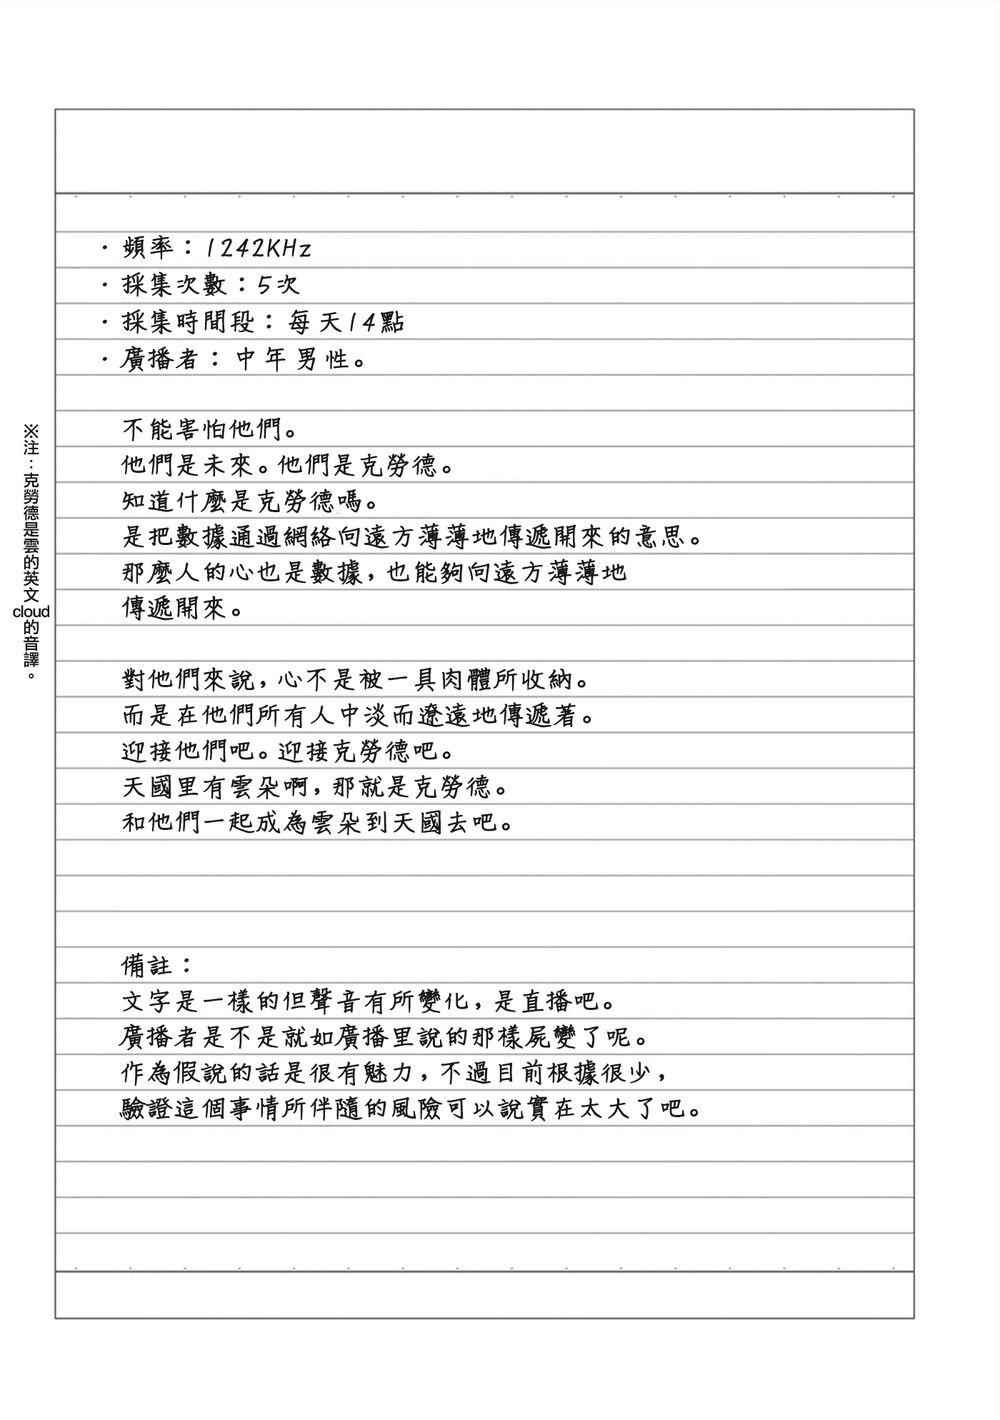 ・頻率：1242KHz
・採集次數：5次
・採集時間段：每天14點
・廣播者：中年男性。
不能害怕他們。
他們是未來。他們是克勞德。
知道什麼是克勞德嗎。
是把數據通過網絡向遠方薄薄地傳遞開來的意思。
那麼人的心也是數據，也能夠向遠方薄薄地
傳遞開來。
對他們來說，心不是被一具肉體所收納。
而是在他們所有人中淡而遼遠地傳遞著。
迎接他們吧。迎接克勞德吧。
天國里有雲朵啊，那就是克勞德。
和他們一起成為雲朵到天國去吧。
備註：
文字是一樣的但聲音有所變化，是直播吧。
廣播者是不是就如廣播里說的那樣屍變了呢。
作為假說的話是很有魅力，不過目前根據很少，
驗證這個事情所伴隨的風險可以說實在太大了吧。
※注：克勞德是雲的英文cloud的音譯。